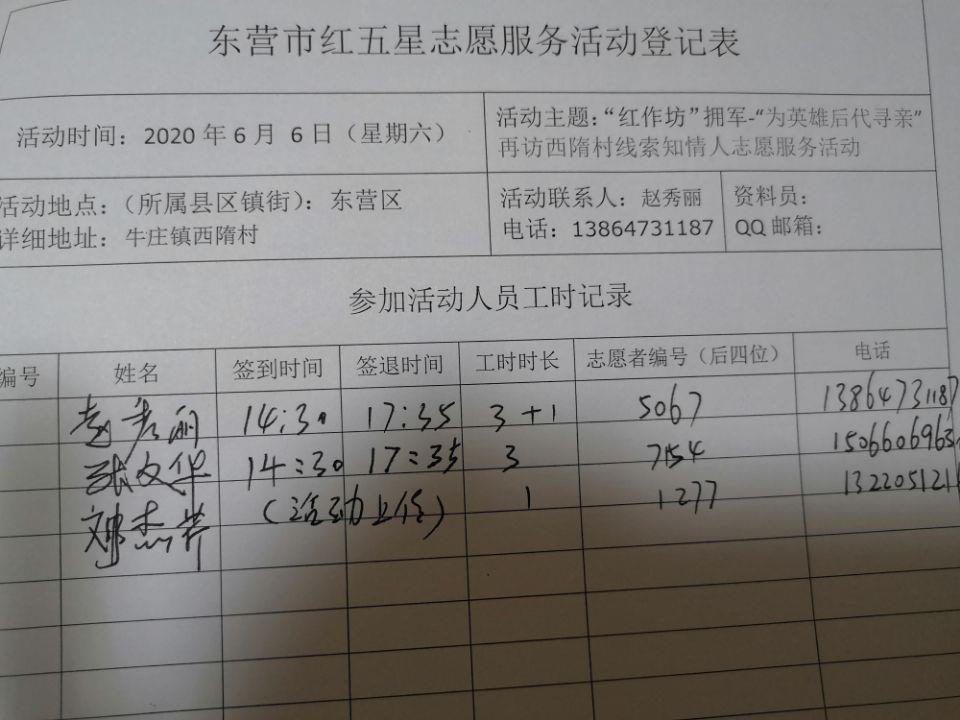 东营市红五星志愿服务活动登记表
活动时间：2020 年 6 月 6 日（星期六）
活动主题：“红作坊”拥军-“为英雄后代寻亲”
再访西隋村线索知情人志愿服务活动
活动地点：（所属县区镇街）：东营区
详细地址：牛庄镇西隋村
活动联系人：赵秀丽
电话：13864731187
资料员：
QQ 邮箱：
参加活动人员工时记录
编号 姓名 签到时间 签退时间 工时时长 志愿者编号（后四位） 电话
赵秀丽 14:30 17:35 3+1 5067 13864731187
张文华 14:30 17:35 3 7154 1506606963
刘杰 （活动上传） 1 1277 132205121